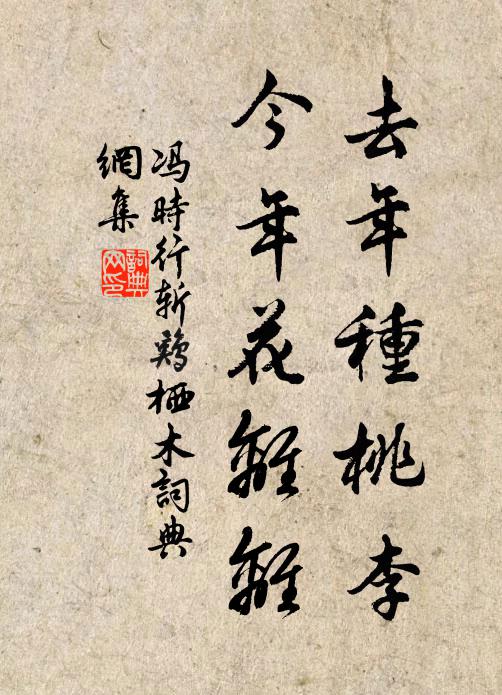 去年種桃李
今年花離離
冯時行斬鷄栖木詞典
網集
詞典
网印